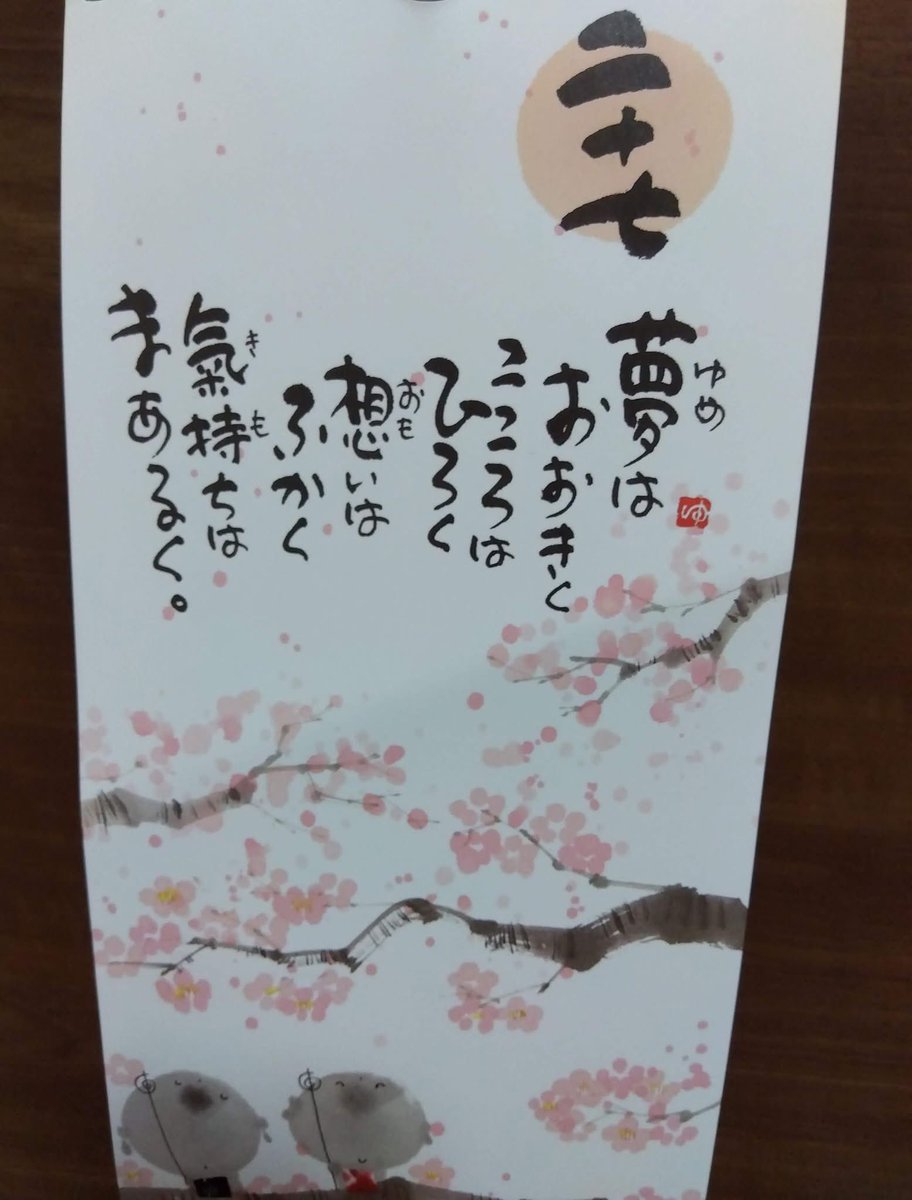 二十七
夢は
ゆめ
おおきく
こころは
ひろく
想いは
おも
ふかく
氣持ちは
き も
まあるく。
ゆ